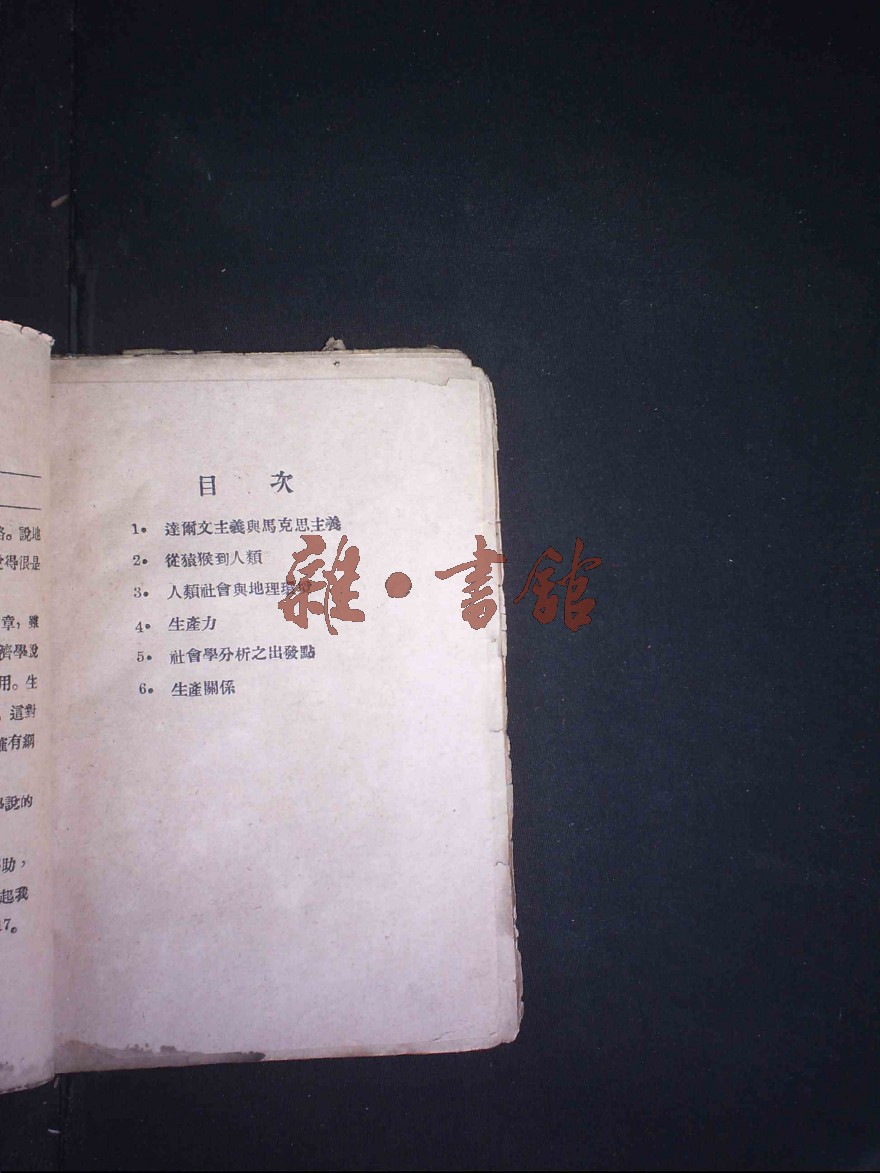 路。說地
得很是
章，雖
濟學說
用。生
這對
有綱
說的
助，
起我
17。
目 次
1。 達爾文主義與馬克思主義
2。 從猿猴到人類
3。 人類社會與地理環境
4。 生產力
5。 社會學分析之出發點
6。 生產關係
雜·書館